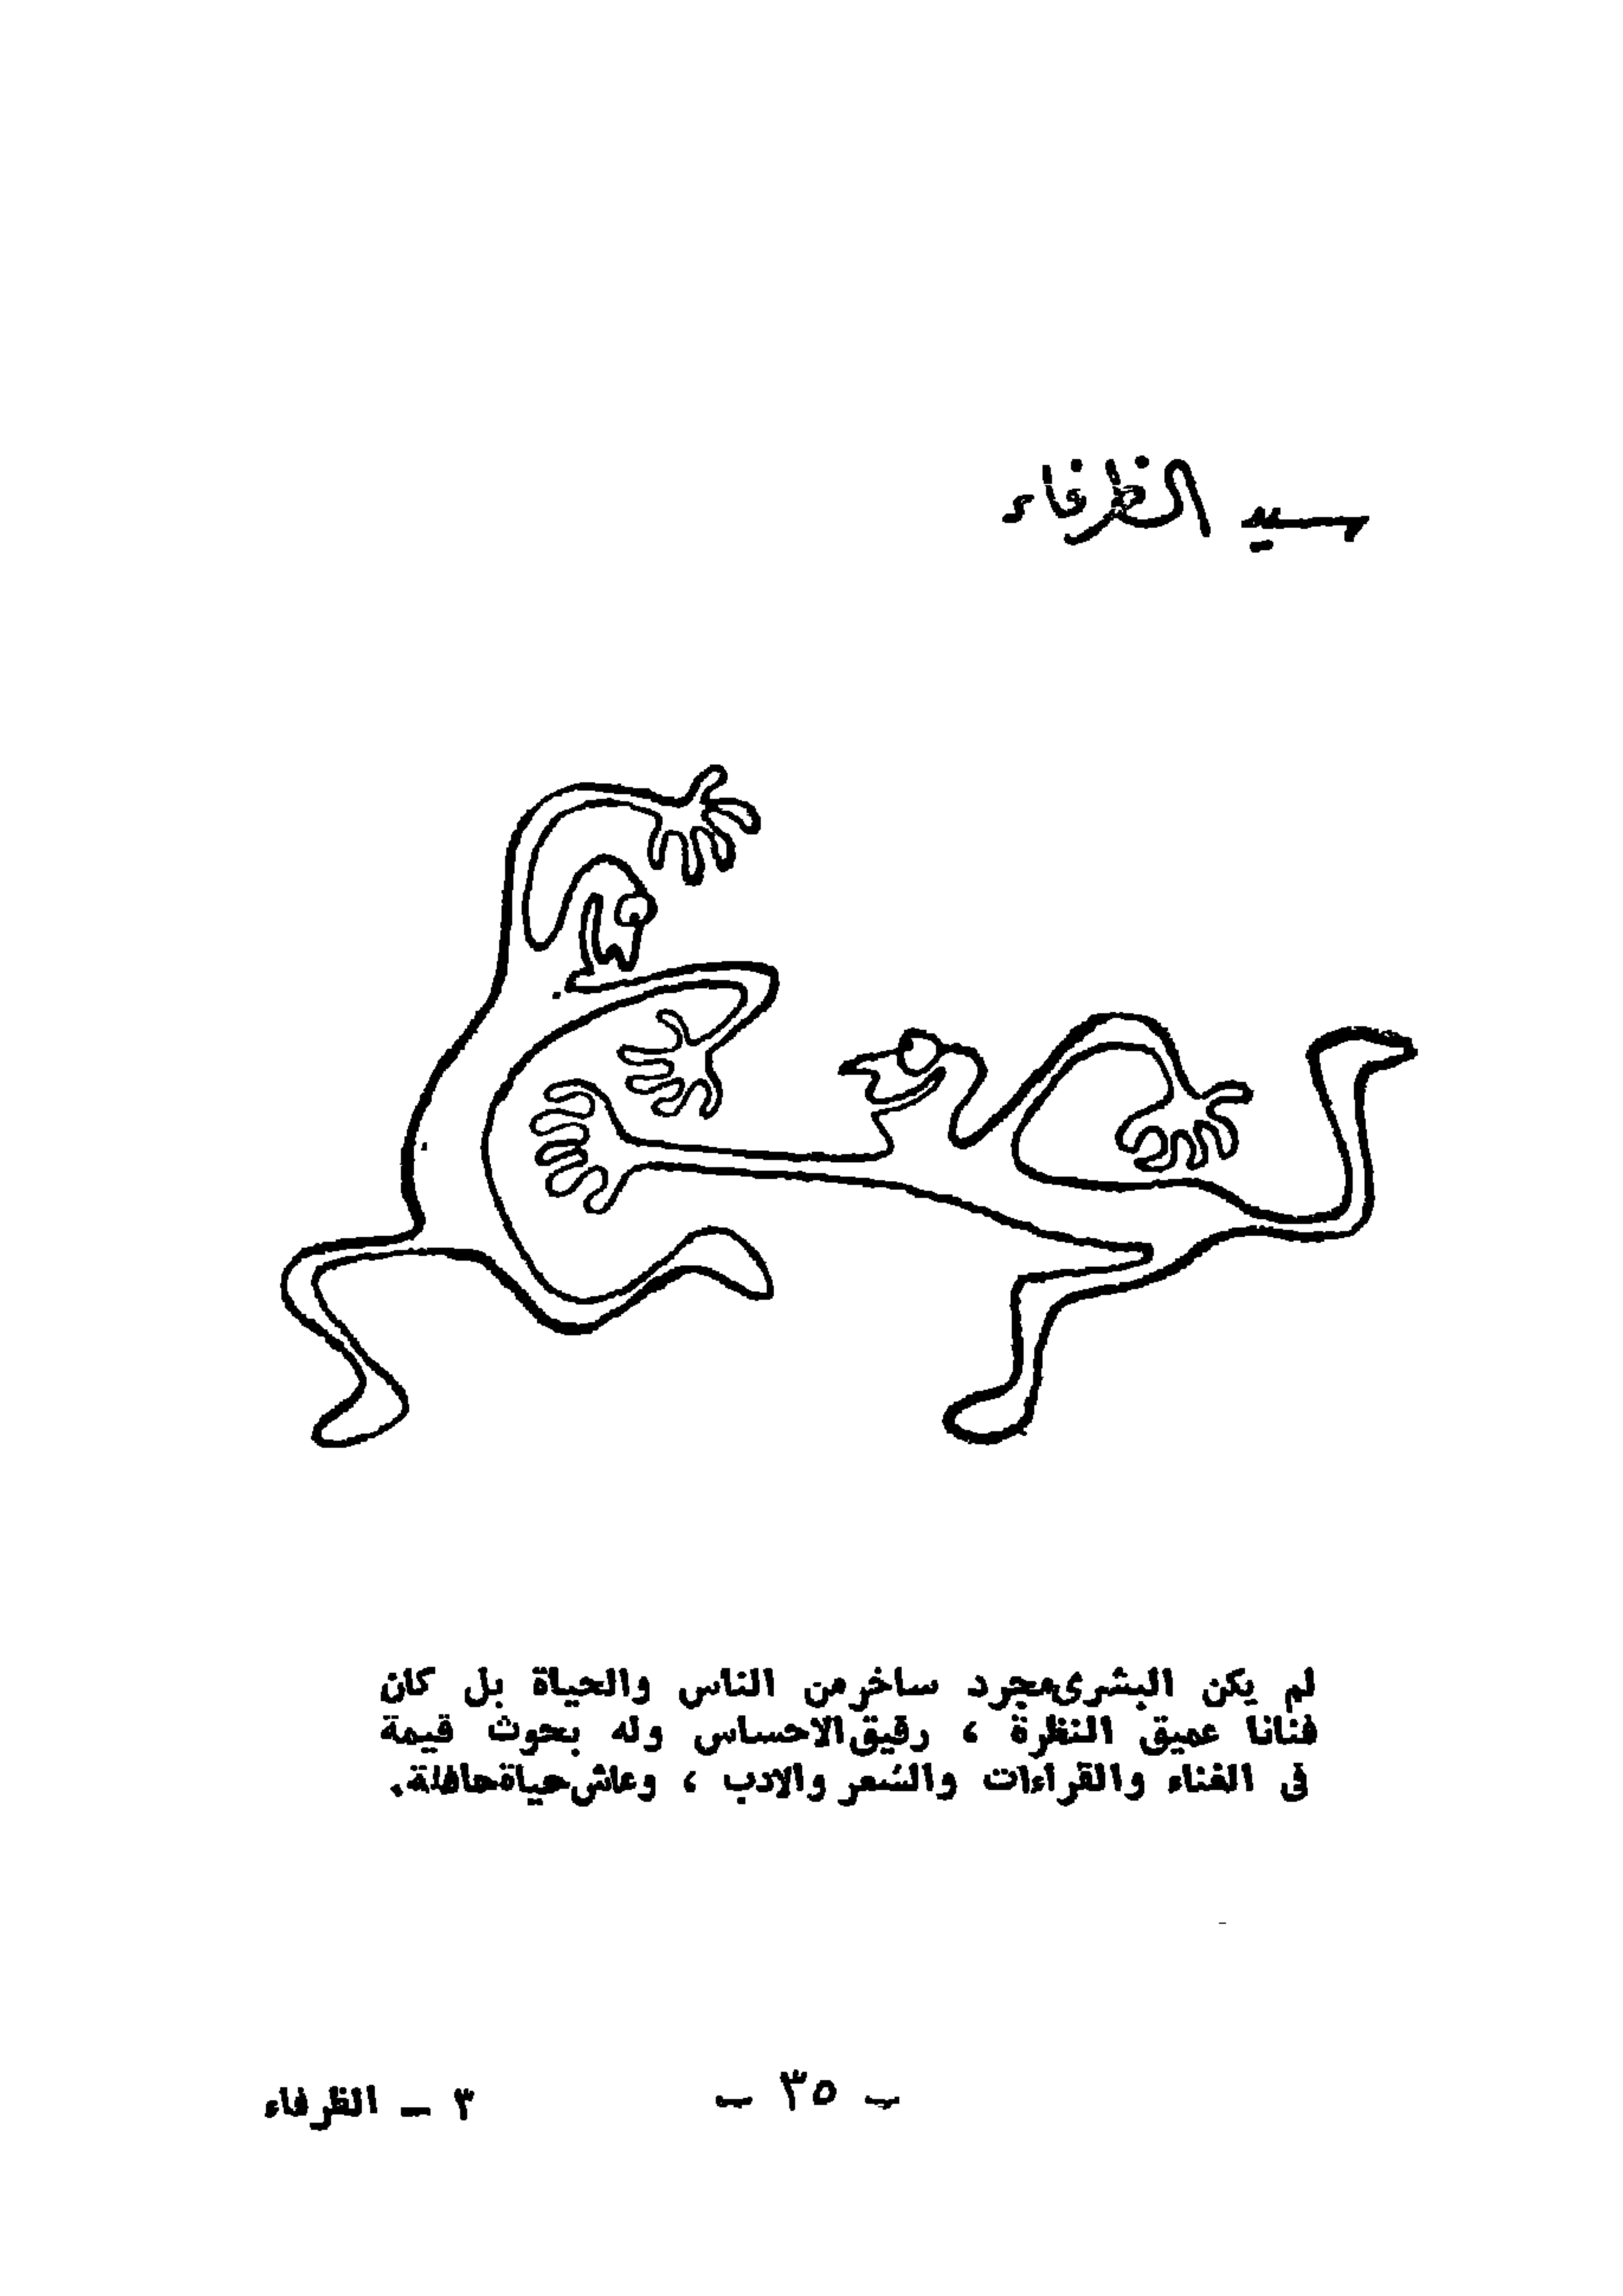 سيد الظرفاء
لم يكن البشرى مجرد ساخر من الناس والحياة بل كان
فنانا عميق النظرة ، رقيق الاحساس وله بحوث قيمة
فى الغناء والقراءات والشعر والادب ، وعاش حياة حافلة.
ـ ٣٥ ـ
٣ ـ الظرفاء